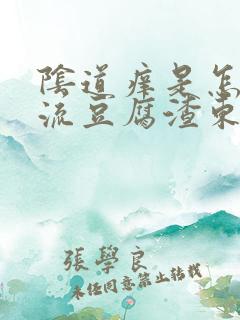 陰道癢是怎
流豆腐渣東
張學良
未任同意禁止转载